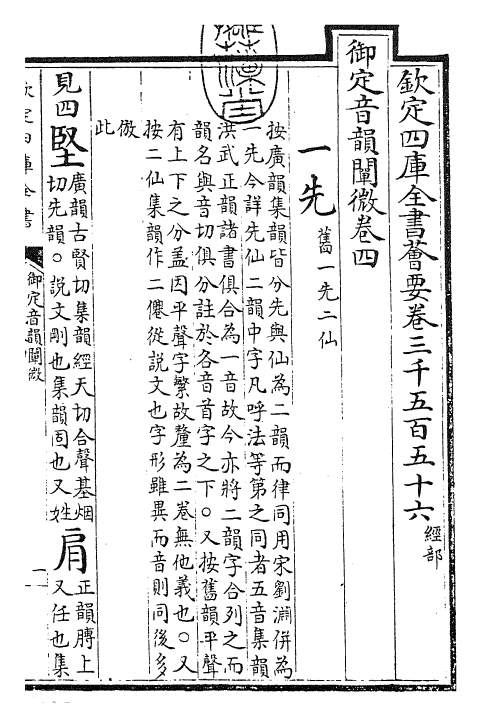 欽定四庫全書薈要卷三千五百五十六 經部
御定音韻闡微卷四
一先 舊一先二仙
按廣韻集韻皆分先與仙為二韻而律同用宋劉淵併為
一先今詳先仙二韻中字凡呼法等第之同者五音集韻
洪武正韻諸書俱合為一音故今亦將二韻字合列之而
韻名與音切俱分註於各音首字之下○又按舊韻平聲
有上下之分盖因平聲字繁故釐為二卷無他義也○又
按二仙集韻作二僊從說文也字形雖異而音則同後多
倣此
見四堅 廣韻古賢切集韻經天切合聲基烟
切先韻○說文剛也集韻固也又姓
肩 正韻髆上
又任也集
欽定四庫全書
御定音韻闡微
一